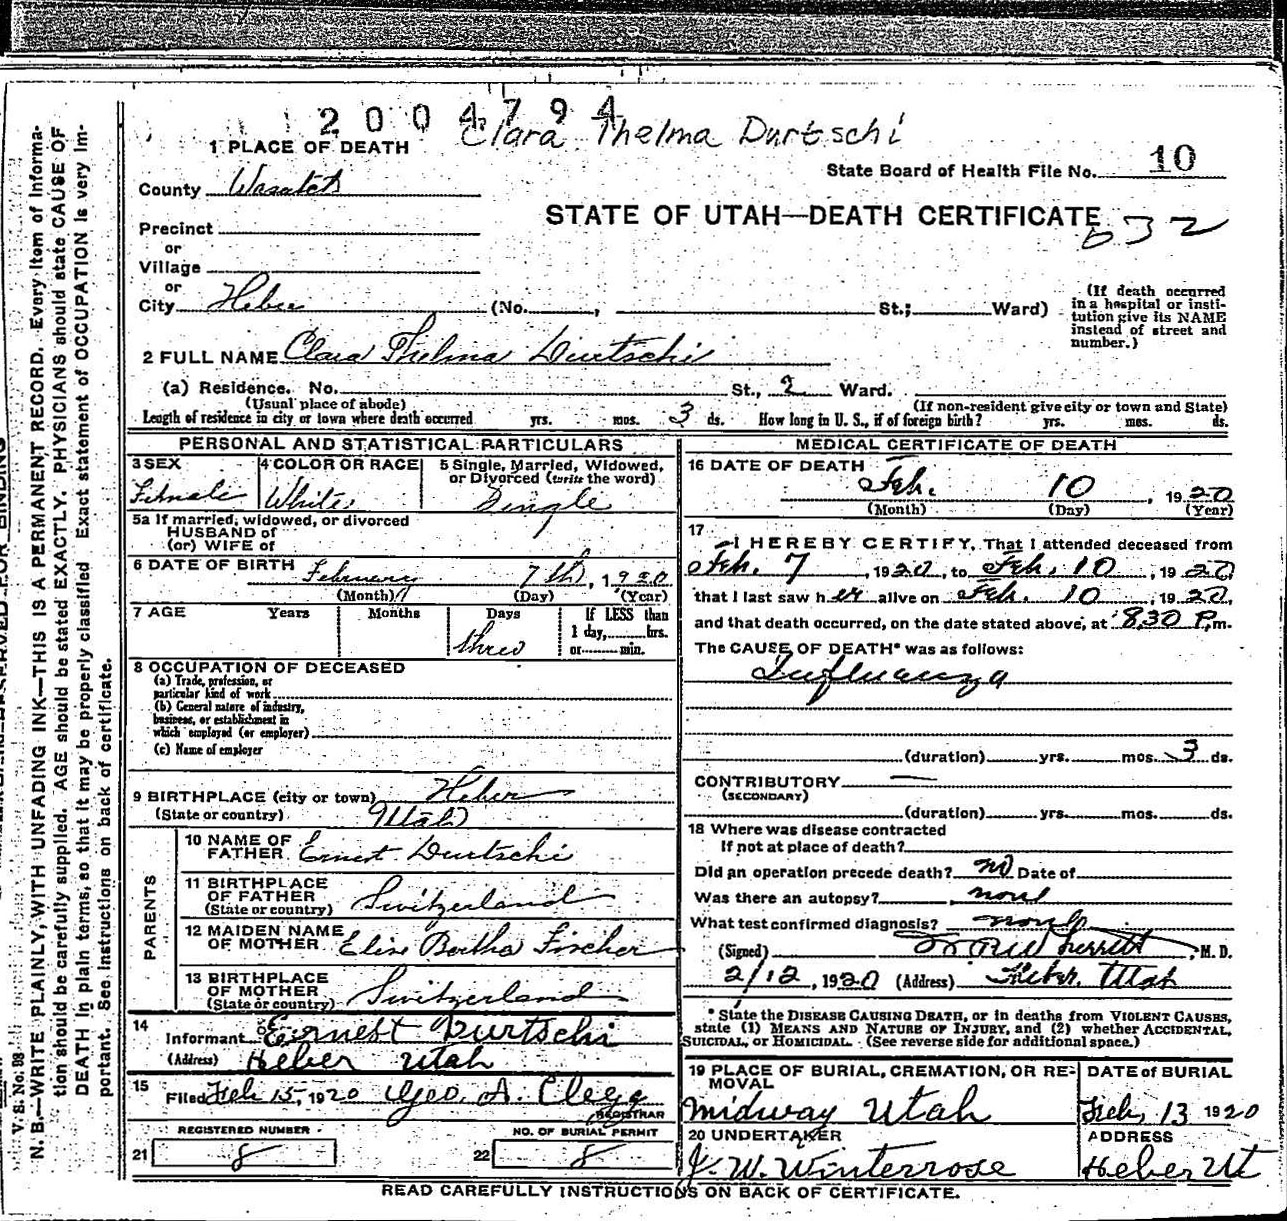 2004794
Clara Thelma Durtschi
1 PLACE OF DEATH
State Board of Health File No. 10
County Wasatch
STATE OF UTAH—DEATH CERTIFICATE
632
Precinct
or
Village
or
City Heber (No. , St.; Ward)
(If death occurred in a hospital or institution give its NAME instead of street and number.)
2 FULL NAME Clara Thelma Durtschi
(a) Residence. No. St., 2 Ward.
(Usual place of abode) (If non-resident give city or town and State)
Length of residence in city or town where death occurred yrs. mos. 3 ds. How long in U. S., if of foreign birth? yrs. mos. ds.
PERSONAL AND STATISTICAL PARTICULARS
3 SEX Female
4 COLOR OR RACE White
5 Single, Married, Widowed, or Divorced (write the word) Single
5a If married, widowed, or divorced
HUSBAND of
(or) WIFE of
6 DATE OF BIRTH February 7th, 1920
(Month) (Day) (Year)
7 AGE Years Months Days If LESS than
three 1 day, hrs.
or min.
8 OCCUPATION OF DECEASED
(a) Trade, profession, or
particular kind of work
(b) General nature of industry,
business, or establishment in
which employed (or employer)
(c) Name of employer
9 BIRTHPLACE (city or town) Heber
(State or country) Utah
PARENTS
10 NAME OF FATHER Ernest Durtschi
11 BIRTHPLACE OF FATHER (State or country) Switzerland
12 MAIDEN NAME OF MOTHER Elise Bertha Fischer
13 BIRTHPLACE OF MOTHER (State or country) Switzerland
14 Informant Ernest Durtschi
(Address) Heber Utah
15 Filed Feb 15, 1920 Geo. A. Clegg
REGISTRAR
REGISTERED NUMBER NO. OF BURIAL PERMIT
21 8 22 8
MEDICAL CERTIFICATE OF DEATH
16 DATE OF DEATH Feb. 10, 1920
(Month) (Day) (Year)
17 I HEREBY CERTIFY, That I attended deceased from
Feb. 7, 1920, to Feb. 10, 1920,
that I last saw her alive on Feb. 10, 1920,
and that death occurred, on the date stated above, at 8.30 P.m.
The CAUSE OF DEATH* was as follows:
Influenza
(duration) yrs. mos. 3 ds.
CONTRIBUTORY —
(SECONDARY)
(duration) yrs. mos. ds.
18 Where was disease contracted
If not at place of death?
Did an operation precede death? no Date of
Was there an autopsy? none
What test confirmed diagnosis? none
(Signed) , M. D.
2/12, 1920 (Address) Heber, Utah
* State the DISEASE CAUSING DEATH, or in deaths from VIOLENT CAUSES,
state (1) MEANS AND NATURE OF INJURY, and (2) whether ACCIDENTAL,
SUICIDAL, or HOMICIDAL. (See reverse side for additional space.)
19 PLACE OF BURIAL, CREMATION, OR REMOVAL DATE of BURIAL
Midway Utah Feb. 13 1920
20 UNDERTAKER ADDRESS
J. W. Winterrose Heber Ut
READ CAREFULLY INSTRUCTIONS ON BACK OF CERTIFICATE.
V. S. No. 98
N. B.—WRITE PLAINLY, WITH UNFADING INK—THIS IS A PERMANENT RECORD. Every item of informa-
tion should be carefully supplied. AGE should be stated EXACTLY. PHYSICIANS should state CAUSE OF
DEATH in plain terms, so that it may be properly classified. Exact statement of OCCUPATION is very im-
portant. See instructions on back of certificate.
RESERVED FOR BINDING